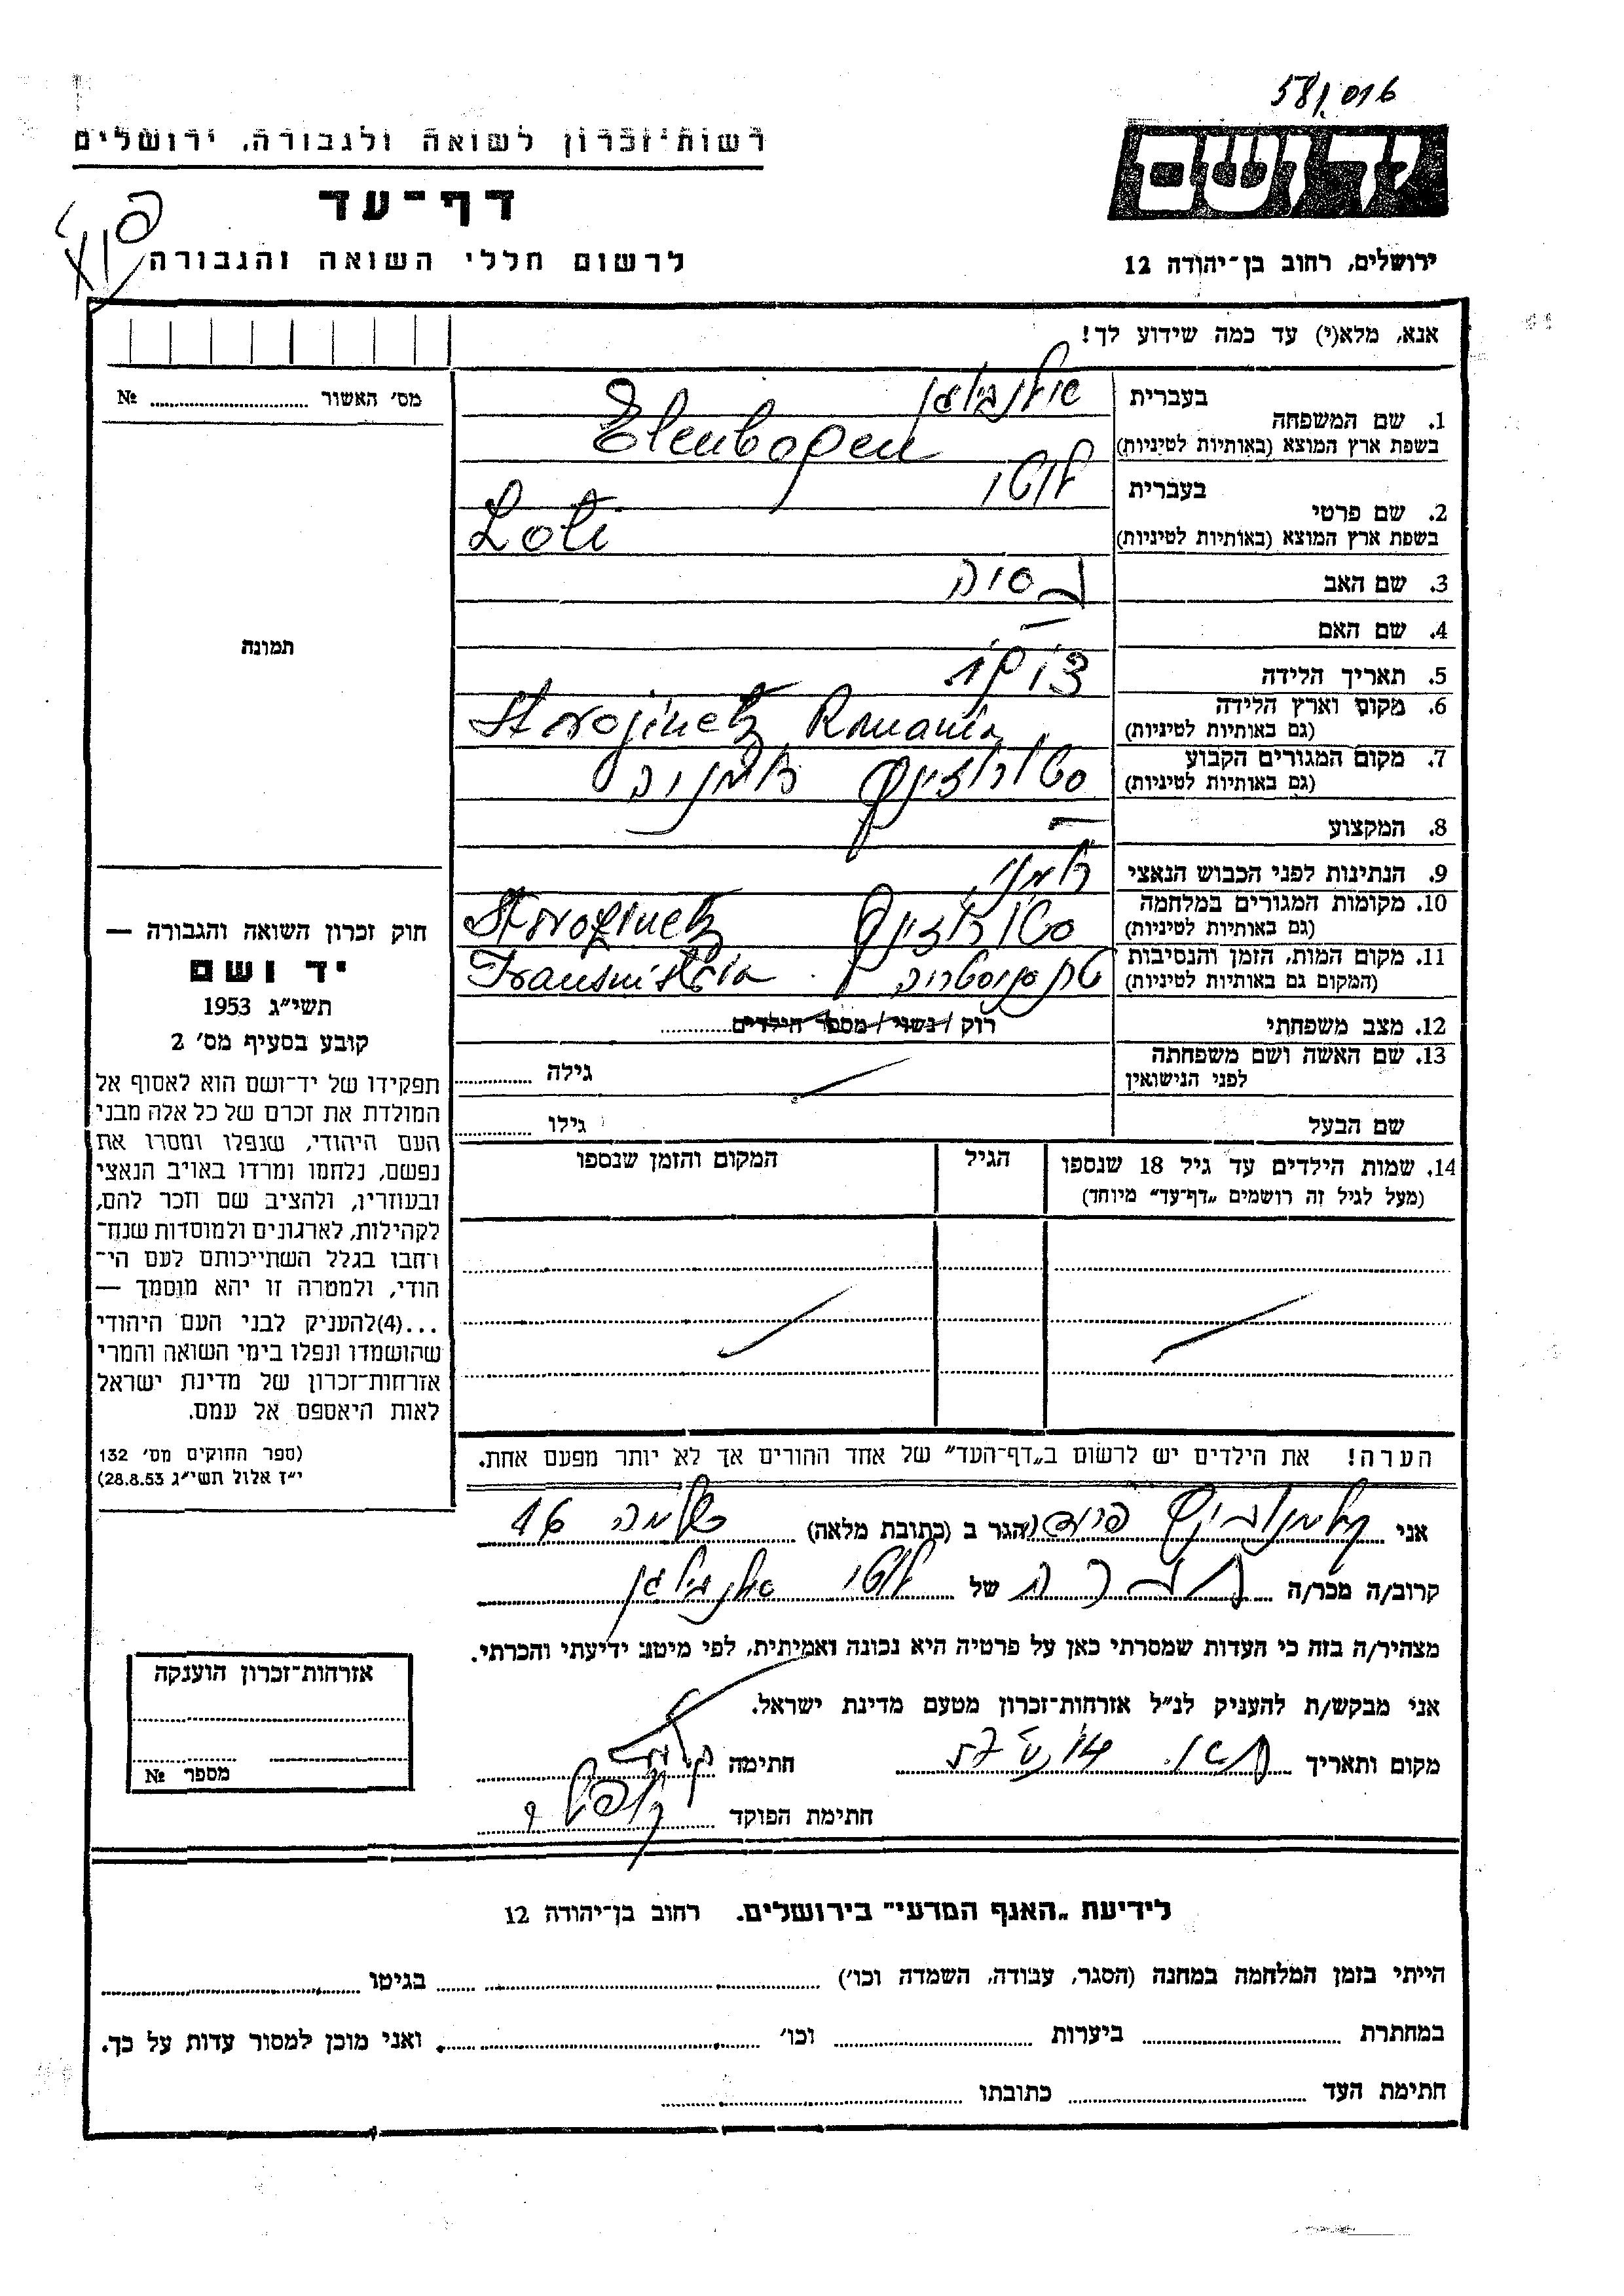 58/016
רשות־זכרון לשואה ולגבורה, ירושלים
יד ושם
דף־עד
לרשום חללי השואה והגבורה
ירושלים, רחוב בן־יהודה 12
אנא, מלא(י) עד כמה שידוע לך!
מס׳ האשור № 
1. שם המשפחה
בעברית
בשפת ארץ המוצא (באותיות לטיניות)
Elenbogen
2. שם פרטי
בעברית לוטי
בשפת ארץ המוצא (באותיות לטיניות)
Loti
3. שם האב
4. שם האם –
5. תאריך הלידה
6. מקום וארץ הלידה
(גם באותיות לטיניות)
Storojinetz Romania
7. מקום המגורים הקבוע
(גם באותיות לטיניות)
סטורוז'ינץ רומניה
8. המקצוע –
9. הנתינות לפני הכבוש הנאצי רומני
10. מקומות המגורים במלחמה
(גם באותיות לטיניות)
סטורוז'ינץ Storojinetz
11. מקום המות, הזמן והנסיבות
(המקום גם באותיות לטיניות)
טרנסניסטריה Transnistria
12. מצב משפחתי רוק / נשוי / מספר הילדים
13. שם האשה ושם משפחתה
לפני הנישואין
גילה
שם הבעל גילו
14. שמות הילדים עד גיל 18 שנספו
(מעל לגיל זה רושמים „דף־עד" מיוחד)
הגיל
המקום והזמן שנספו
הערה! את הילדים יש לרשום ב„דף־העד" של אחד ההורים אך לא יותר מפעם אחת.
תמונה
חוק זכרון השואה והגבורה —
יד ושם
תשי״ג 1953
קובע בסעיף מס׳ 2
תפקידו של יד־ושם הוא לאסוף אל
המולדת את זכרם של כל אלה מבני
העם היהודי, שנפלו ומסרו את
נפשם, נלחמו ומרדו באויב הנאצי
ובעוזריו, ולהציב שם וזכר להם,
לקהילות, לארגונים ולמוסדות שנח־
רבו בגלל השתייכותם לעם הי־
הודי, ולמטרה זו יהא מוסמך —
...(4)להעניק לבני העם היהודי
שהושמדו ונפלו בימי השואה והמרי
אזרחות־זכרון של מדינת ישראל
לאות היאספם אל עמם.
(ספר החוקים מס׳ 132
י״ז אלול תשי״ג 28.8.53)
אני הגר ב (כתובת מלאה) 46
קרוב/ה מכר/ה חברה של לוטי
מצהיר/ה בזה כי העדות שמסרתי כאן על פרטיה היא נכונה ואמיתית, לפי מיטב ידיעתי והכרתי.
אני מבקש/ת להעניק לנ״ל אזרחות־זכרון מטעם מדינת ישראל.
מקום ותאריך חתימה
חתימת הפוקד
אזרחות־זכרון הוענקה
מספר №
לידיעת „האגף המדעי" בירושלים. רחוב בן־יהודה 12
הייתי בזמן המלחמה במחנה (הסגר, עבודה, השמדה וכו׳) בגיטו
במחתרת ביערות וכו׳ ואני מוכן למסור עדות על כך.
חתימת העד כתובתו